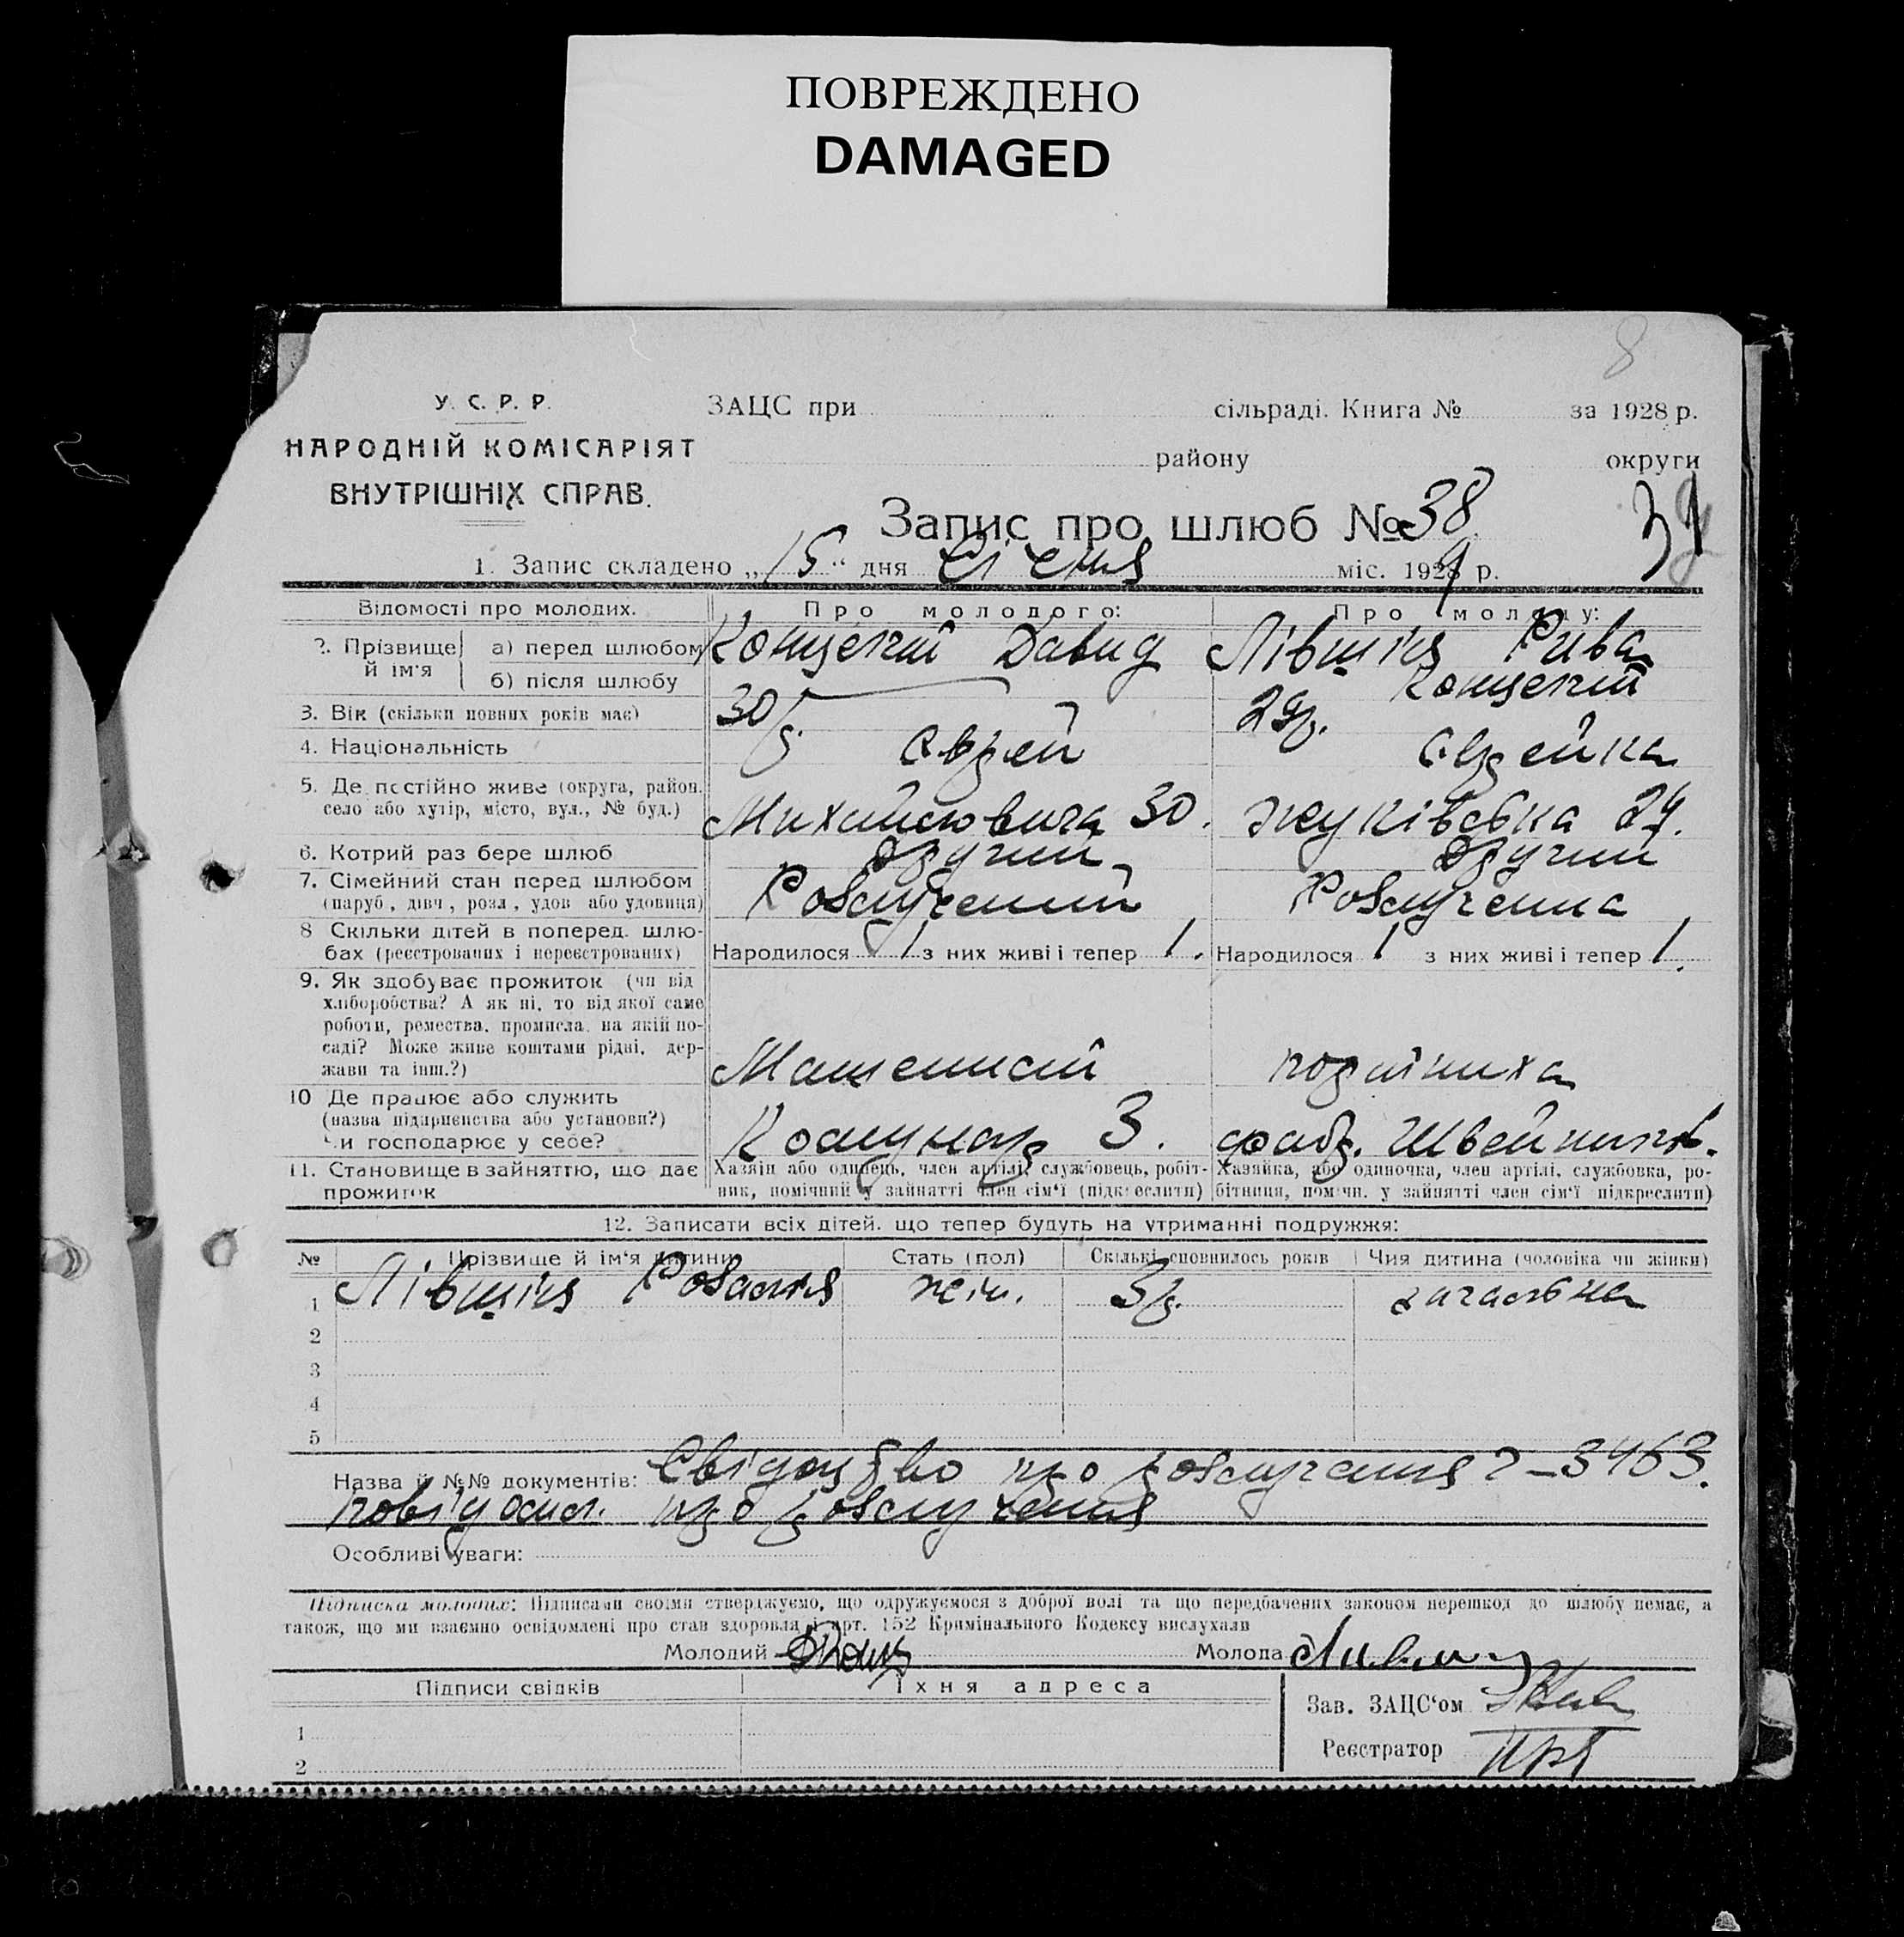 ПОВРЕЖДЕНО
DAMAGED
8
У. С. Р. Р.
НАРОДНІЙ КОМІСАРІЯТ
ВНУТРІШНІХ СПРАВ.
ЗАЦС при сільраді. Книга № за 1928 р.
району округи
Запис про шлюб № 38
1. Запис складено „15“ дня Січня міс. 1929 р.
Відомості про молодих. Про молодого: Про молоду:
2. Прізвище й ім'я а) перед шлюбом Давид Лівшиць Рива
б) після шлюбу
3. Вік (скільки повних років має) 30 р. 29 р.
4. Національність Єврей Єврейка
5. Де постійно живе (округа, район, село або хутір, місто, вул., № буд.) 30. 24.
6. Котрий раз бере шлюб другий другий
7. Сімейний стан перед шлюбом Розлучений Розлучена
(паруб., дівч., розл., удов. або удовиця)
8 Скільки дітей в поперед. шлюбах (реєстрованих і нереєстрованих) Народилося 1 з них живі і тепер 1. Народилося 1 з них живі і тепер 1.
9. Як здобуває прожиток (чи від
хліборобства? А як ні, то від якої саме
роботи, ремества, промисла, на якій по-
саді? Може живе коштами рідні, дер-
жави та інш.?) робітниха
10 Де працює або служить
(назва підприємства або установи?)
Чи господарює у себе? Комунар 3. фабр.
11. Становище в зайняттю, що дає прожиток
Хазяїн або одинець, член артілі, службовець, робіт-
ник, помічний у зайнятті член сім'ї (підкреслити)
Хазяйка, або одиночка, член артілі, службовка, ро-
бітниця, помічн. у зайнятті член сім'ї підкреслити)
12. Записати всіх дітей, що тепер будуть на утриманні подружжя:
№ Прізвище й ім'я дитини Стать (пол) Скількі сповнилось років Чия дитина (чоловіка чи жінки)
1 Лівшиць Розалія жін. 3 р. загальна
2
3
4
5
Назва й №№ документів: Свідоцтво про розлучення 2-3463.
повідомл. про розлучення
Особливі уваги:
Підписка молодих: Підписами своїми стверджуємо, що одружуємося з доброї волі та що передбачених законом перешкод до шлюбу немає, а
також, що ми взаємно освідомлені про стан здоровля і арт. 152 Кримінального Кодексу вислухали
Молодий Молода
Підписи свідків Їхня адреса
Зав. ЗАЦС'ом
1
Реєстратор
2